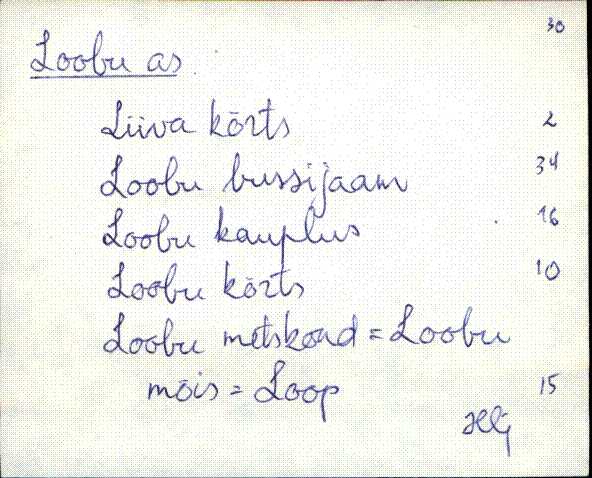 30
Loobu as
Liiva kõrts 2
Loobu bussijaam 34
Loobu kauplus 16
Loobu kõrts 10
Loobu metskond = Loobu
mõis = Loop 15